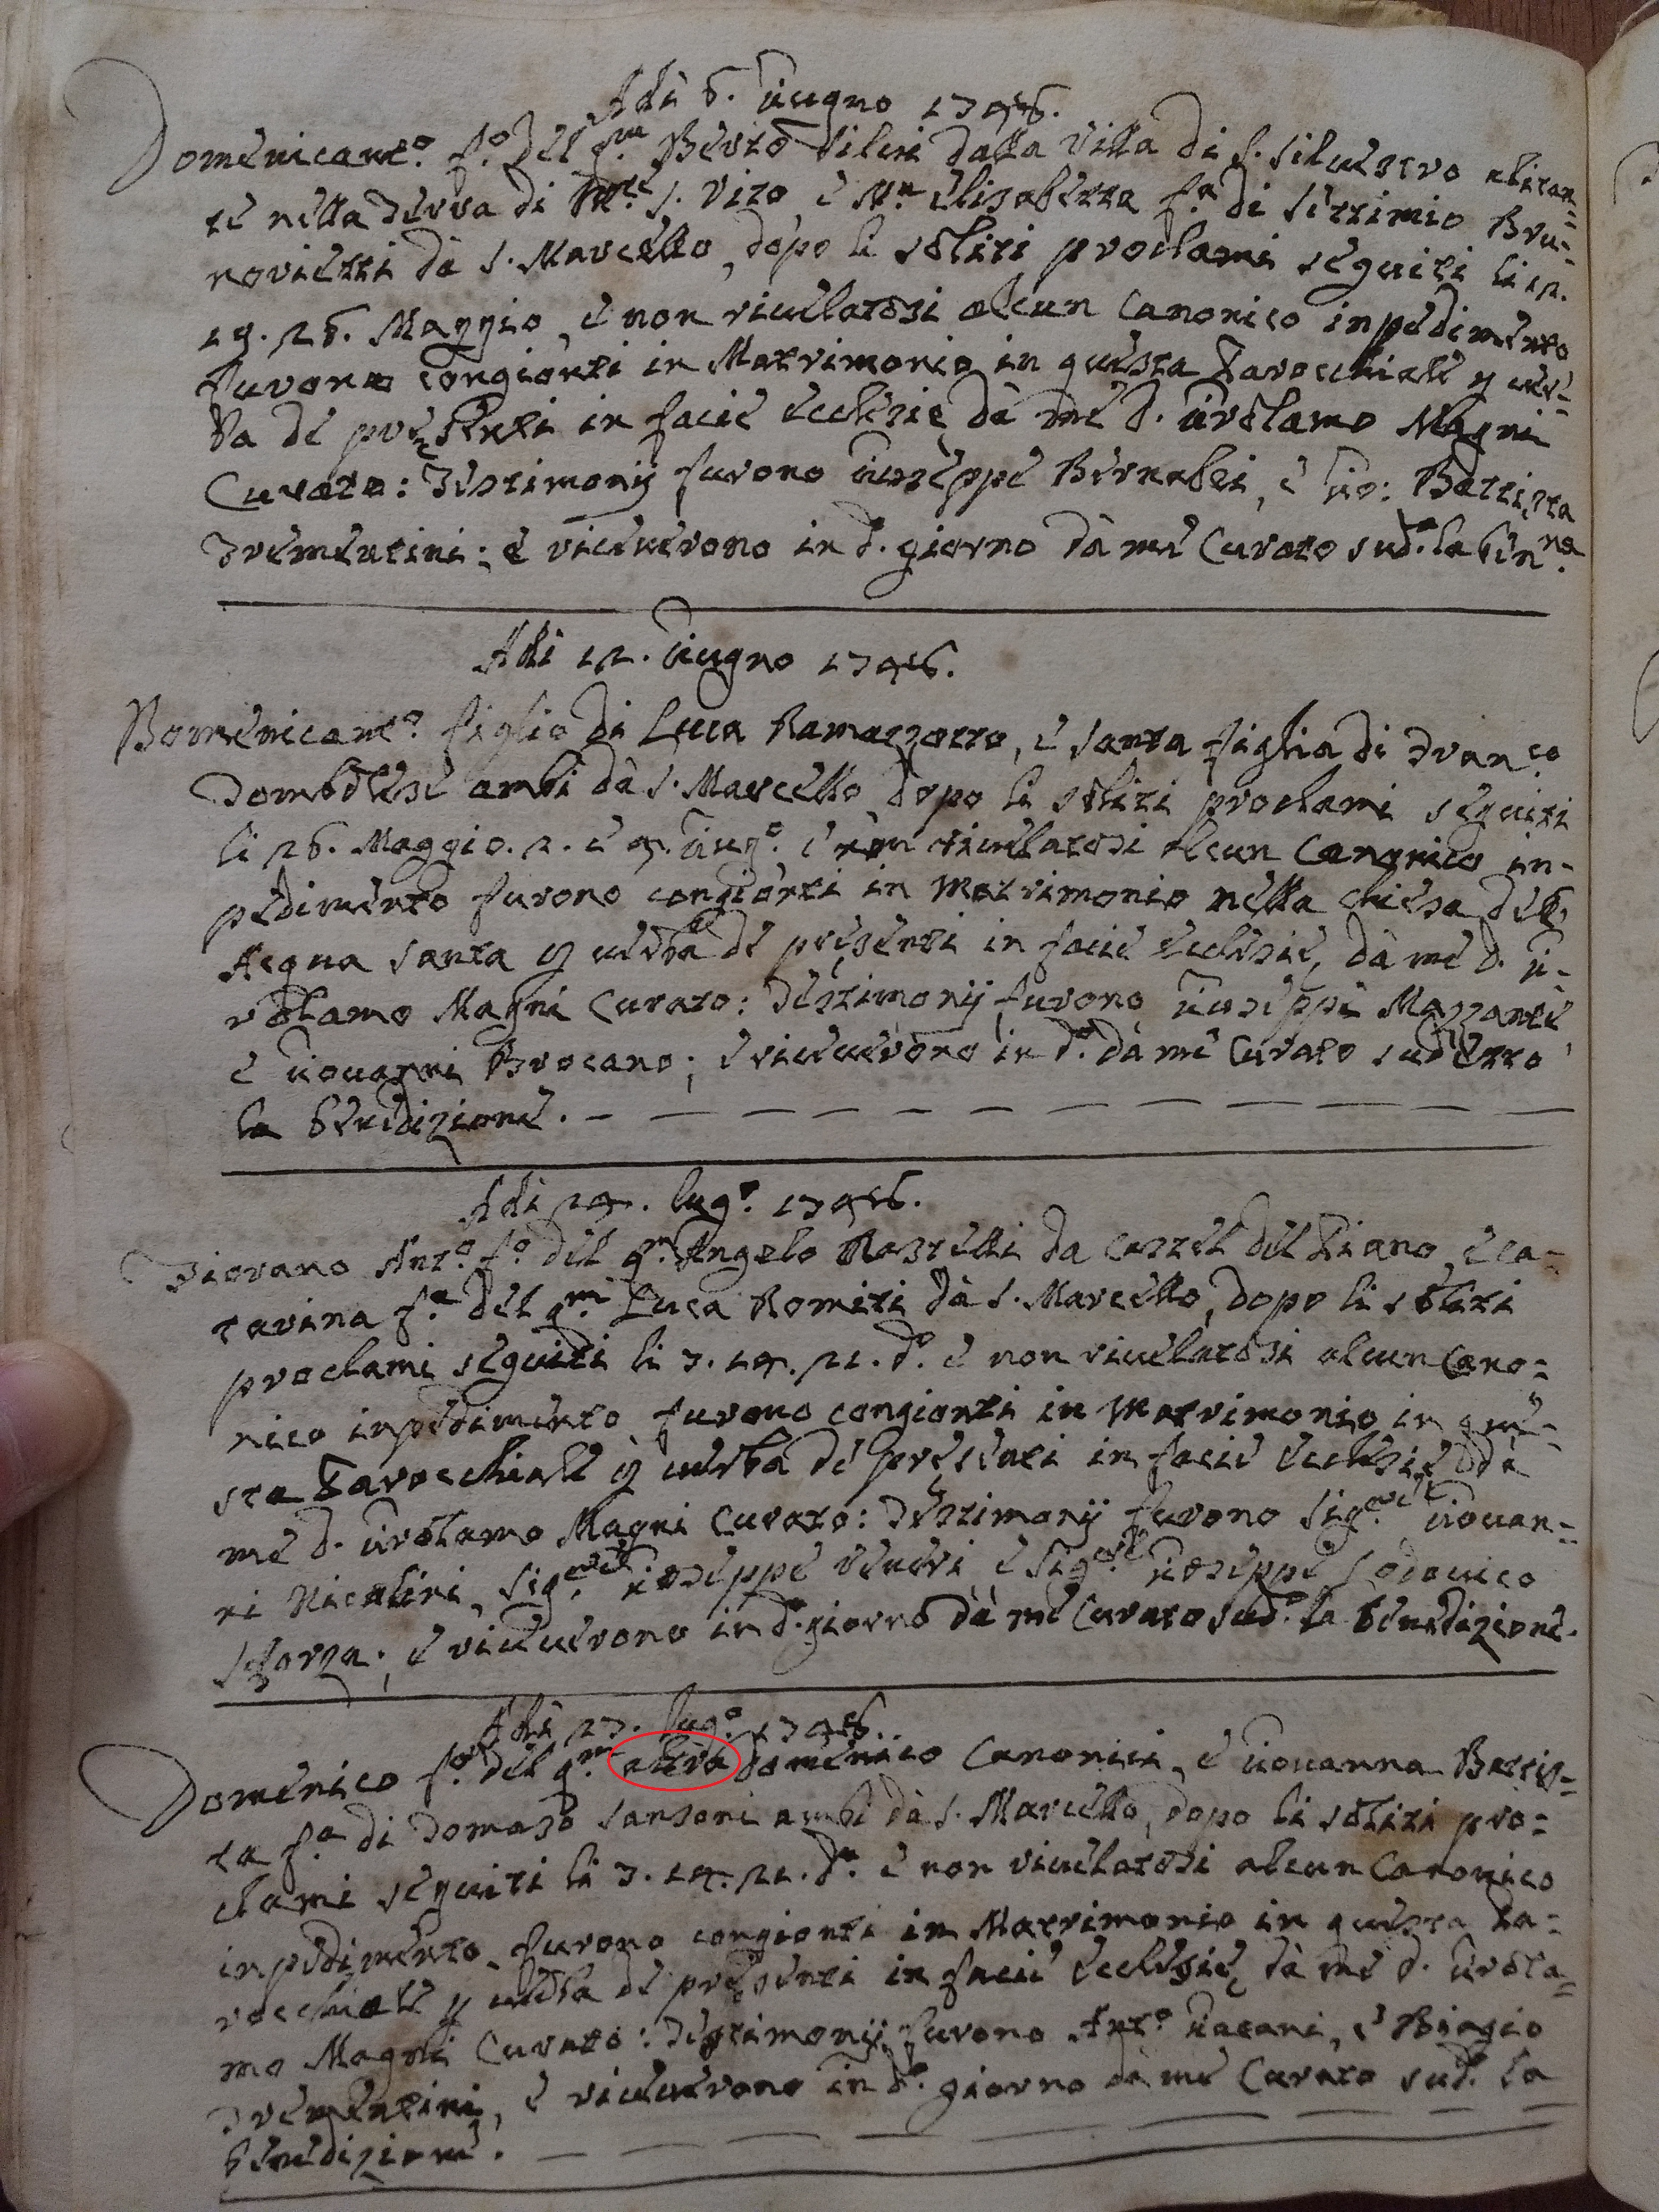 Adi 6. Giugno 1746.
Domenicant.º f.º del q.m Berto dalla Villa di S. Silvestro abitan=
te nella Terra di S. Vito, e M.a Elisabetta f.a di Settimio Bru=
novietti da S. Marcello, dopo li soliti proclami seguiti li 12.
19. 26. Maggio, e non rivelatosi alcun Canonico inpedimento
furono congionti in Matrimonio in questa Parocchiale p ver=
ba de presenti in facie ecclesie da me d. Girolamo Magni
Curato: Testimonij furono Giuseppe Bernabei, e Gio: Battista
Trementini; e riceverono in d.º giorno da me Curato sud.º la ben.na
Adi 12. Giugno 1746.
Domenicant.º figlio di Luca Ramazzotto, e Santa figlia di Fran.co
Tombolese ambi da S. Marcello dopo li soliti proclami seguiti
li 26. Maggio. 2. e 5. Giug.º e non rivelatosi alcun Canonico in-
pedimento furono congionti in Matrimonio nella chiesa dell'
Acqua santa p verba de presenti in facie ecclesie, da me d. Gi-
rolamo Magni Curato: Testimonij furono Giuseppe Mazzante
e Giovanni Brocano; e riceverono in d.º da me Curato sudetto
la benedizione.
Adi 24. lug.º 1746.
Ant.º f.º del q.m Angelo Rastelli da Castel del Piano, e Ca=
tarina f.a del q.m Luca Romiti da S. Marcello, dopo li soliti
proclami seguiti li 7. 14. 21. d.º e non rivelatosi alcun Cano=
nico inpedimento furono congionti in Matrimonio in que=
sta Parocchiale p verba de presenti in facie ecclesie da
me d. Girolamo Magni Curato: Testimonij furono Sig.re Giovan=
ni Nicolini, Sig.re Giuseppe Veneri e Sig.re Giuseppe Lodovico
Sforza; e riceverono in d.º giorno da me Curato sud.º la benedizione.
Adi 27. lug.º 1746.
Domenico f.º del q.m altro Domenico Canonici, e Giovanna Battis=
ta f.a di Tomaso Sansoni ambi da S. Marcello, dopo li soliti pro=
clami seguiti li 7. 14. 21. d.º e non rivelatosi alcun Canonico
inpedimento furono congionti in Matrimonio in questa Pa=
rocchiale p verba de presenti in facie ecclesie, da me d. Girola=
mo Magni Curato: Testimonij furono Ant.º e Biagio
Trementini, e riceverono in d.º giorno da me Curato sud.º la
benedizione.